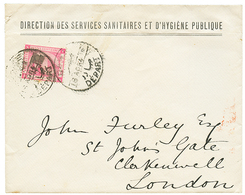 DIRECTION DES SERVICES SANITAIRES ET D'HYGIÈNE PUBLIQUE
DEPART
John Furley Esq
St Johns Gate
Clerkenwell
London